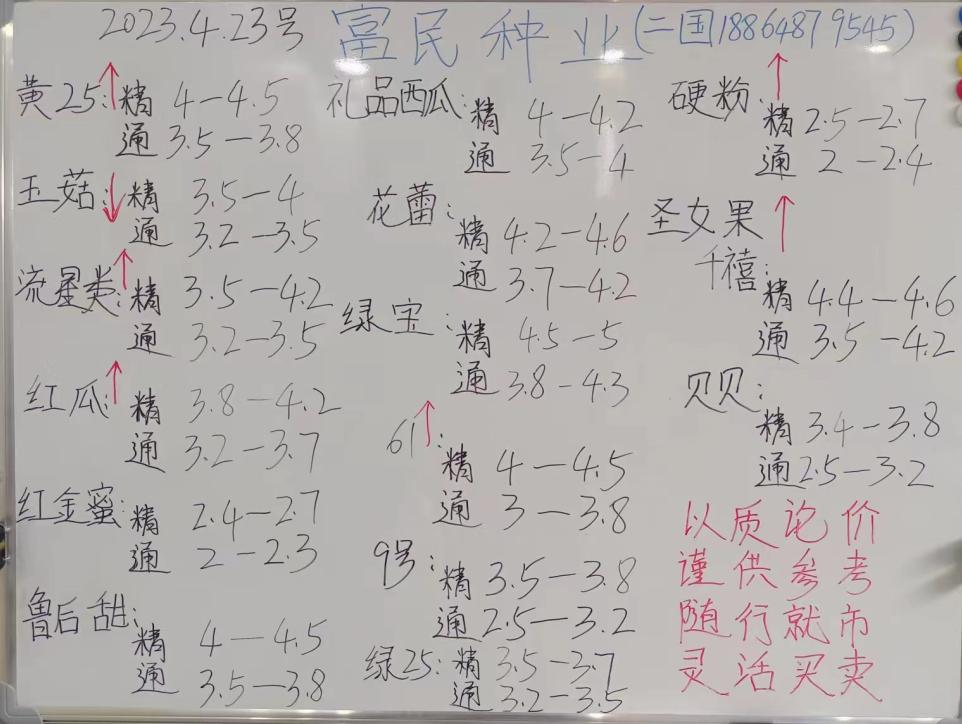 2023.4.23号 富民种业(二国18864879545)
黄25:↑精 4-4.5
通 3.5-3.8
玉菇:↓精 3.5-4
通 3.2-3.5
流星类:↑精 3.5-4.2
通 3.2-3.5
红瓜:↑精 3.8-4.2
通 3.2-3.7
红金蜜:精 2.4-2.7
通 2-2.3
鲁后甜:精 4-4.5
通 3.5-3.8
礼品西瓜:精 4-4.2
通 3.5-4
花蕾:精 4.2-4.6
通 3.7-4.2
绿宝:精 4.5-5
通 3.8-4.3
61↑:精 4-4.5
通 3-3.8
9号:精 3.5-3.8
通 2.5-3.2
绿25:精 3.5-3.7
通 3.2-3.5
硬粉:↑精 2.5-2.7
通 2-2.4
圣女果↑
千禧:精 4.4-4.6
通 3.5-4.2
贝贝:精 3.4-3.8
通 2.5-3.2
以质论价
谨供参考
随行就市
灵活买卖